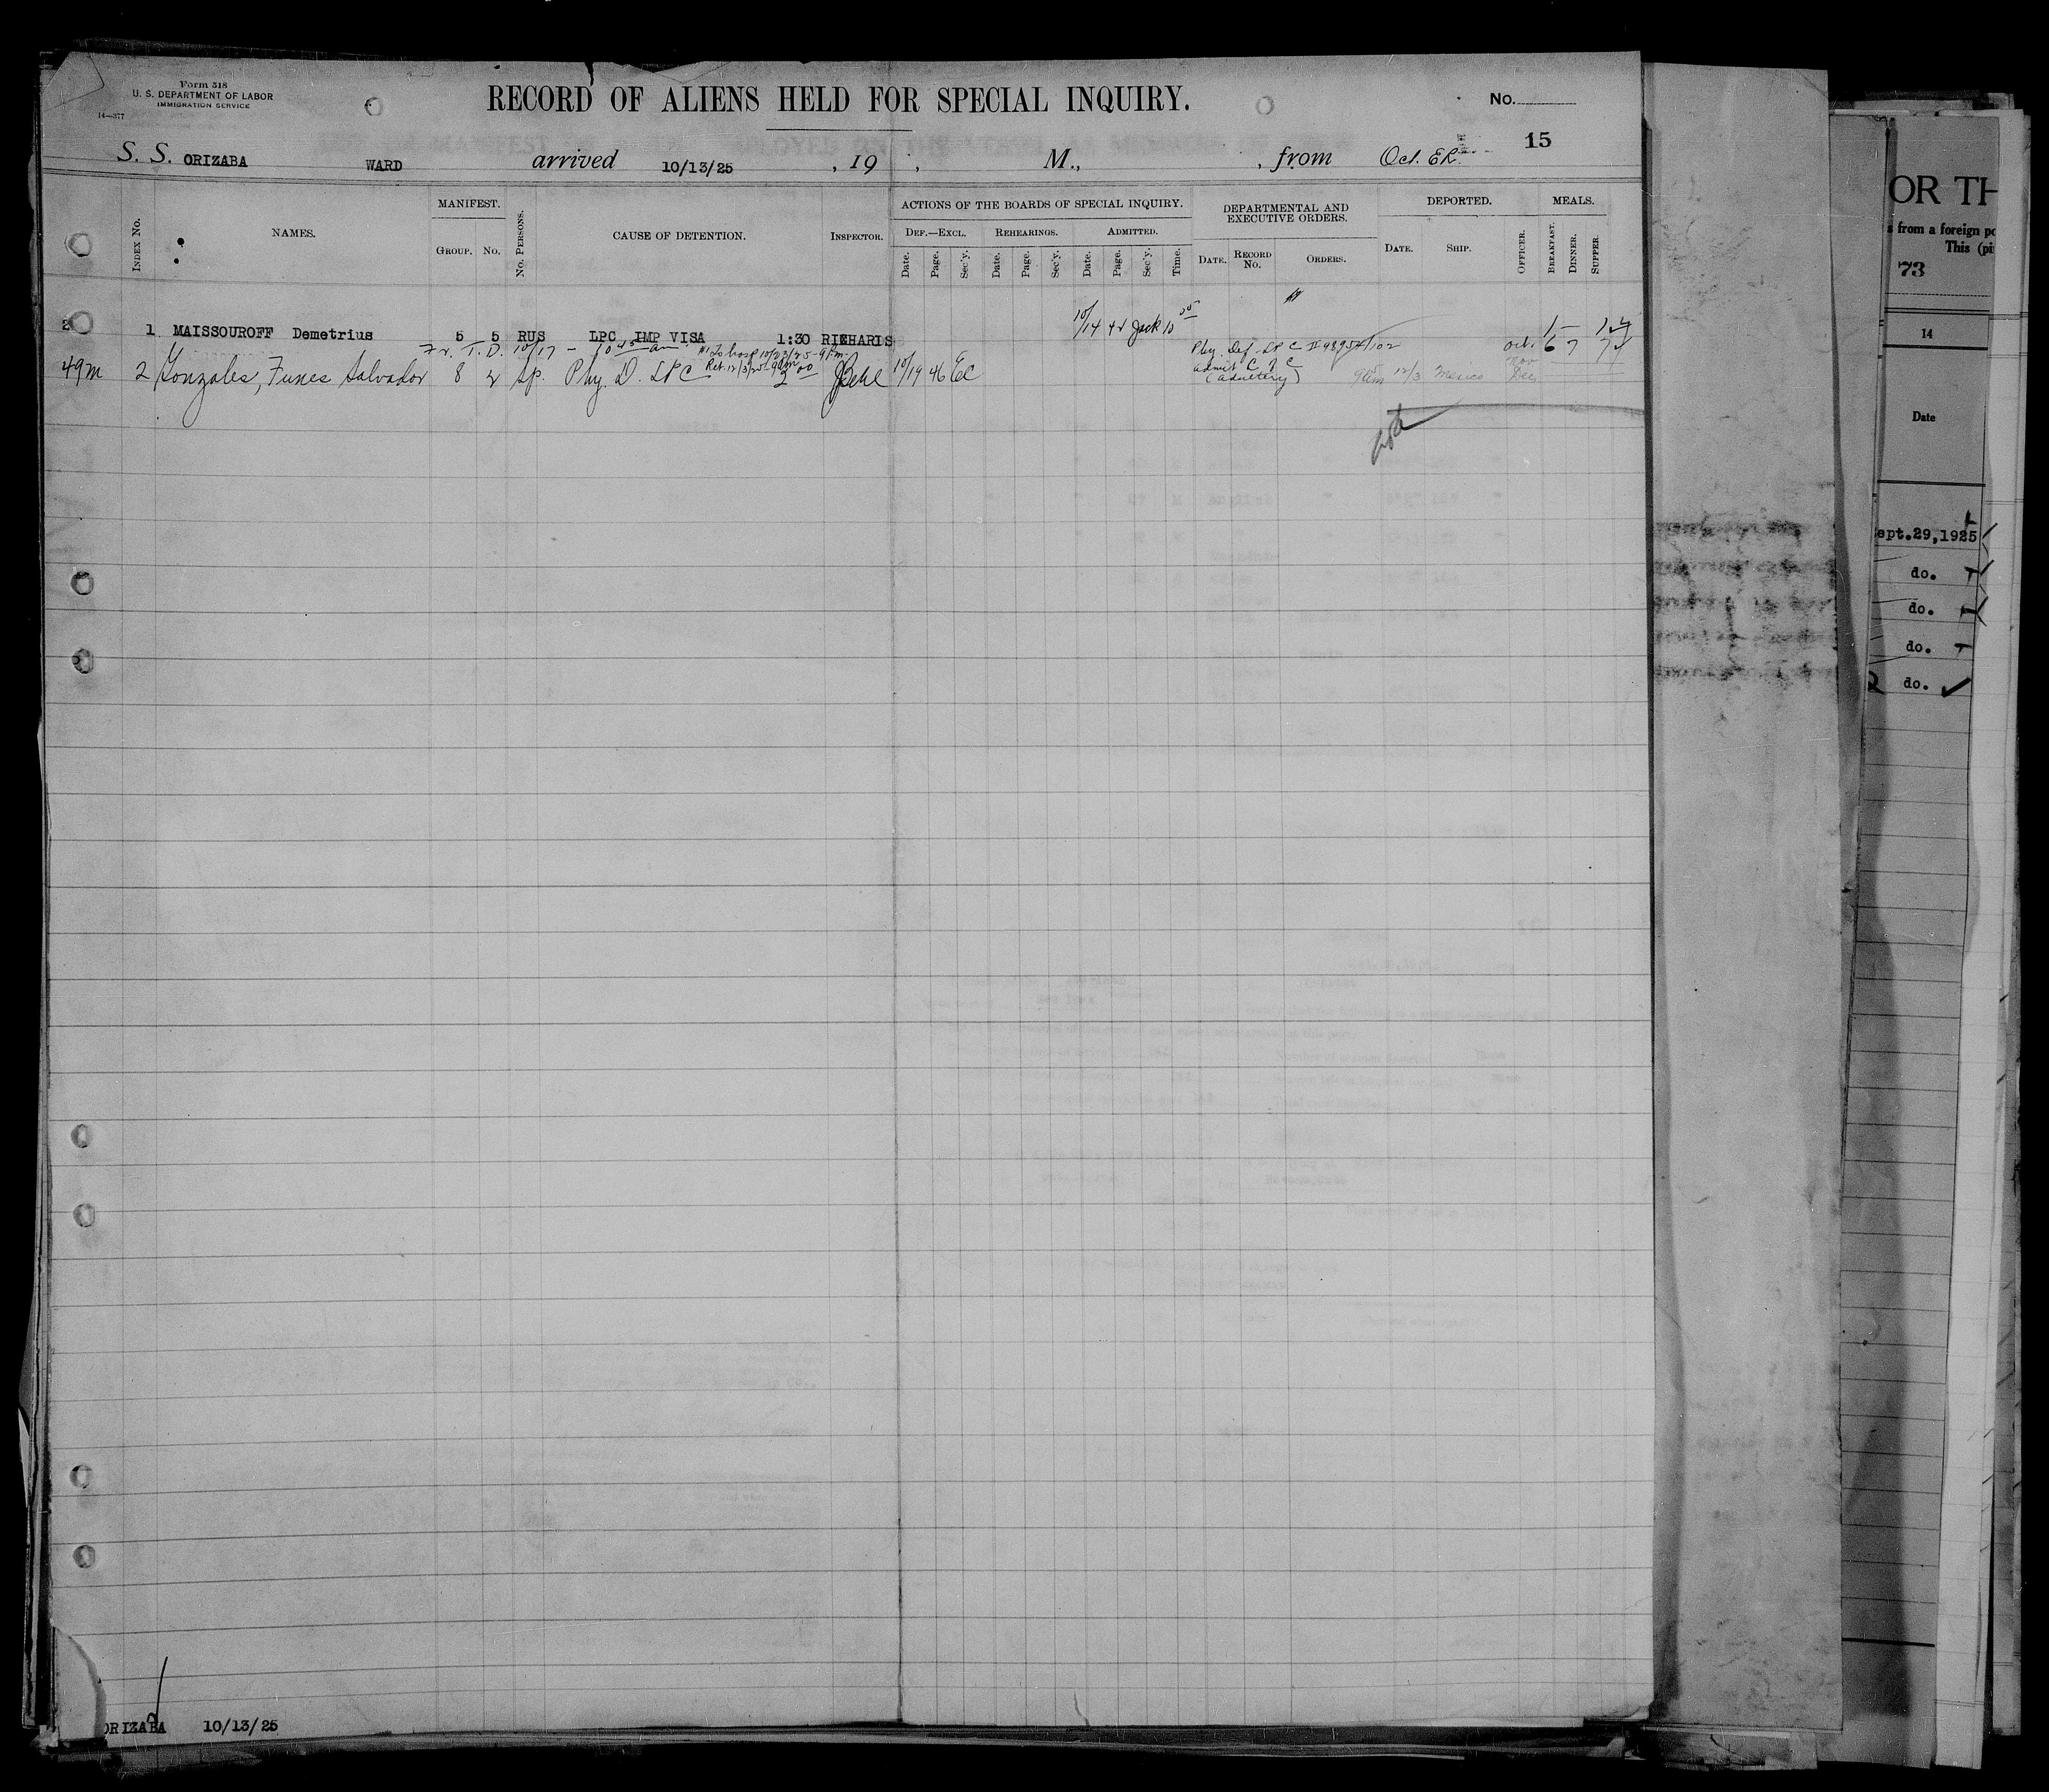 Form 518
U. S. DEPARTMENT OF LABOR
IMMIGRATION SERVICE
14—377
RECORD OF ALIENS HELD FOR SPECIAL INQUIRY.
No.
15
S. S. ORIZABA WARD arrived 10/13/25 , 19 , M., , from Oct. ER.
INDEX No. NAMES. MANIFEST. GROUP. No. No. PERSONS. CAUSE OF DETENTION. INSPECTOR.
ACTIONS OF THE BOARDS OF SPECIAL INQUIRY.
DEF.—EXCL. REHEARINGS. ADMITTED.
Date. Page. Sec'y. Date. Page. Sec'y. Date. Page. Sec'y. Time.
DEPARTMENTAL AND EXECUTIVE ORDERS.
DATE. RECORD No. ORDERS.
DEPORTED.
DATE. SHIP. OFFICER.
MEALS.
BREAKFAST. DINNER. SUPPER.
1 MAISSOUROFF Demetrius 5 5 RUS LPC IMP VISA 1:30 10/14 42 Jack 10
T. D. 10/17 - 10 45 am
To hosp 10/23/25 - 9 Pm
Ret. 12/3/25 - 9am
49m 2 Gonzales, Funes Salvador 8 2 Sp. Phy. D. LPC 2 00 10/19 46 EC
Phy. Def. LPC
admit C of C
(adultery)
12/3 Mexico
Oct. 6 7 7
Nov
Dec
ORIZABA 10/13/25
OR TH
from a foreign po
This (pi
73
14
Date
ept.29,1925
do.
do.
do.
do.